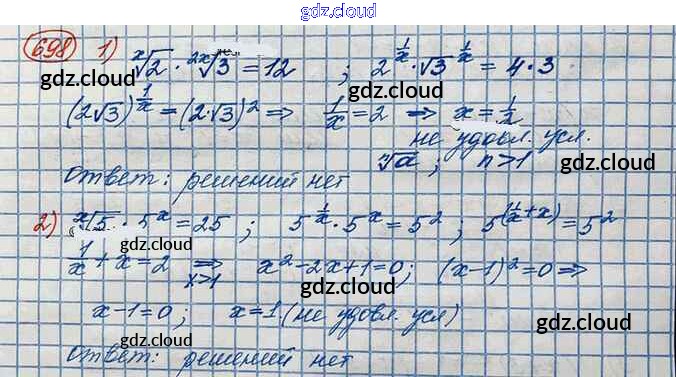 gdz.cloud
698 1) ˣ√2 · ²ˣ√3 = 12 ; 2^(1/x) · √3^(1/x) = 4 · 3
gdz.cloud gdz.cloud
(2√3)^(1/x) = (2·√3)² ⇒ 1/x = 2 ⇒ x = 1/2
gdz.cloud
не удовл. усл.
ⁿ√a ; n>1
gdz.cloud gdz.cloud
Ответ: решений нет
2) ˣ√5 · 5ˣ = 25 ; 5^(1/x) · 5ˣ = 5² ; 5^(1/x + x) = 5²
gdz.cloud gdz.cloud
1/x + x = 2 ⇒ x>1 x² - 2x + 1 = 0 ; (x-1)² = 0 ⇒
gdz.cloud
x - 1 = 0 ; x = 1 (не удовл. усл)
gdz.cloud
Ответ: решений нет
gdz.cloud